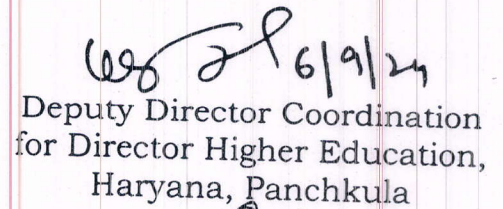 6/9/24
Deputy Director Coordination
for Director Higher Education,
Haryana, Panchkula